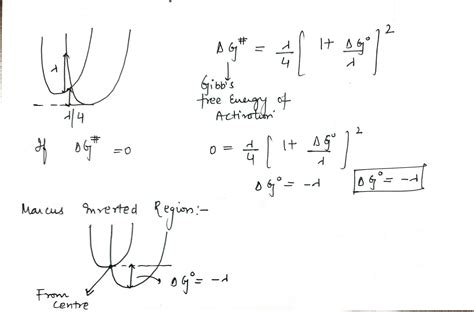 ΔG^# = λ/4 [ 1 + ΔG°/λ ]^2
λ
Gibb's
free Energy of
Activation
λ/4
If ΔG^# = 0
0 = λ/4 [ 1 + ΔG°/λ ]^2
ΔG° = -λ
ΔG° = -λ
Marcus Inverted Region:-
ΔG° = -λ
From
centre